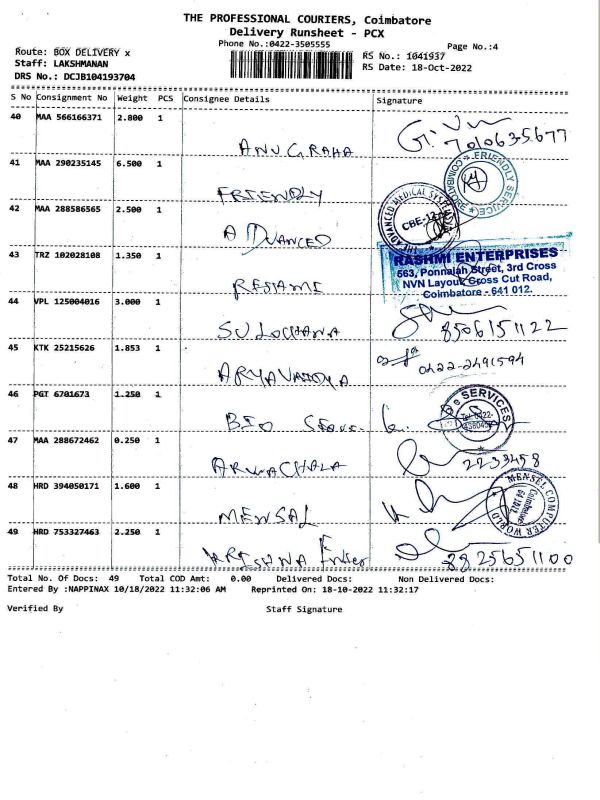 THE PROFESSIONAL COURIERS, Coimbatore
Delivery Runsheet - PCX
Phone No.:0422-3505555
Page No.:4
Route: BOX DELIVERY x
Staff: LAKSHMANAN
DRS No.: DCJB104193704
RS No.: 1041937
RS Date: 18-Oct-2022
S No Consignment No Weight PCS Consignee Details Signature
40 MAA 566166371 2.800 1
ANUGRAHA 7010635677
41 MAA 290235145 6.500 1
FRIENDLY
FRIENDLY SERVICE COIMBATORE
42 MAA 288586565 2.500 1
ADVANCED
ADVANCED MEDICAL SYSTEMS
CBE-12
43 TRZ 102028108 1.350 1
RESHMI
RASHMI ENTERPRISES
563, Ponnaiah Street, 3rd Cross
NVN Layout, Cross Cut Road,
Coimbatore - 641 012.
44 VPL 125004016 3.000 1
SULOCHANA 8506151122
45 KTK 25215626 1.853 1
ARYAVAIDYA 0422-2491594
46 PGT 6701673 1.250 1
BIO
SERVICES
47 MAA 288672462 0.250 1
ARUNACHALA 2233458
48 HRD 394050171 1.600 1
MENSAL
MENSEL COMPUTER WORLD
Coimbatore
641012
49 HRD 753327463 2.250 1
KRISHNA
Total No. Of Docs: 49 Total COD Amt: 0.00 Delivered Docs: Non Delivered Docs:
Entered By :NAPPINAX 10/18/2022 11:32:06 AM Reprinted On: 18-10-2022 11:32:17
Verified By Staff Signature